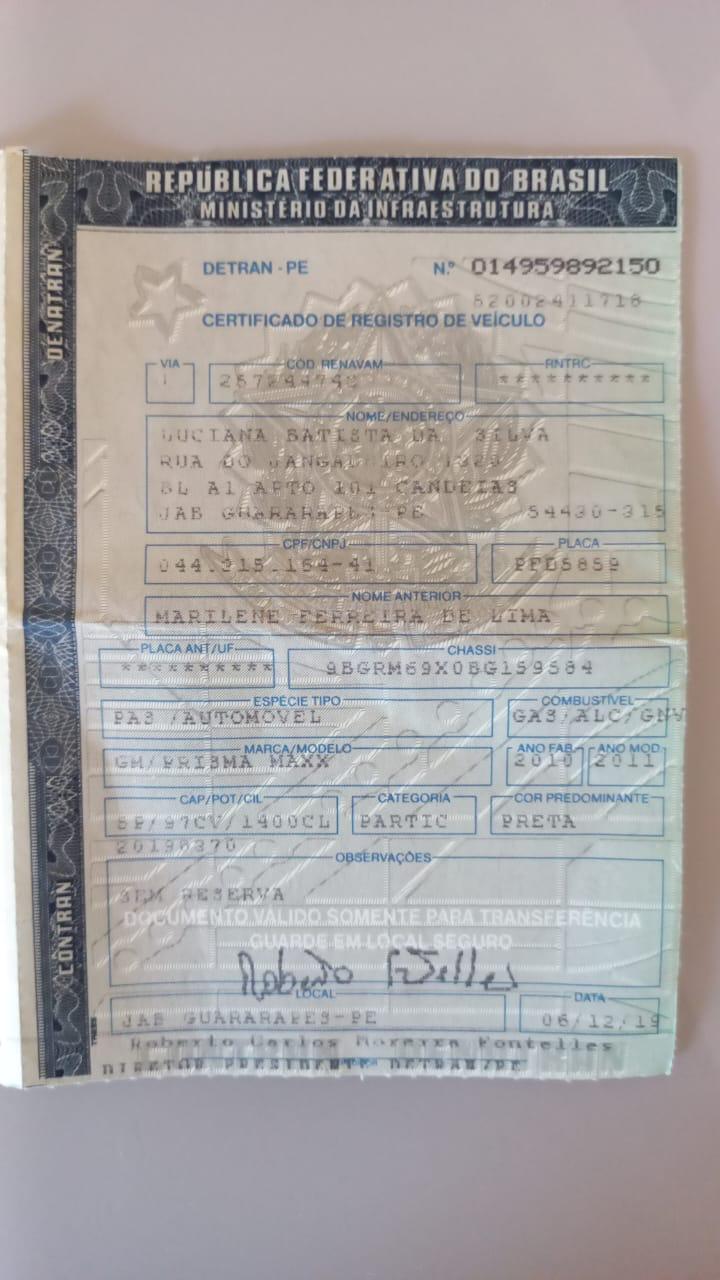 REPÚBLICA FEDERATIVA DO BRASIL
MINISTÉRIO DA INFRAESTRUTURA
DENATRAN
CONTRAN
DETRAN - PE Nº 014959892150
CERTIFICADO DE REGISTRO DE VEÍCULO
VIA CÓD. RENAVAM RNTRC
1 **********
NOME/ENDEREÇO
LUCIANA BATISTA DA SILVA
RUA DO
BL A1 APTO 101 CANDEIAS
JAB GUARARAPES-PE 54430-315
CPF/CNPJ PLACA
PFD5859
NOME ANTERIOR
MARILENE FERREIRA DE LIMA
PLACA ANT/UF CHASSI
********** 9BGRM69X0BG159584
ESPÉCIE TIPO COMBUSTÍVEL
PAS /AUTOMOVEL GAS/ALC/GNV
MARCA/MODELO ANO FAB. ANO MOD.
GM/PRISMA MAXX 2010 2011
CAP/POT/CIL CATEGORIA COR PREDOMINANTE
5P/97CV/1400CL PARTIC PRETA
OBSERVAÇÕES
SEM RESERVA
DOCUMENTO VÁLIDO SOMENTE PARA TRANSFERÊNCIA
GUARDE EM LOCAL SEGURO
LOCAL DATA
JAB GUARARAPES-PE 06/12/19
Roberto Carlos Moreira Fontelles
DIRETOR PRESIDENTE DETRAN/PE